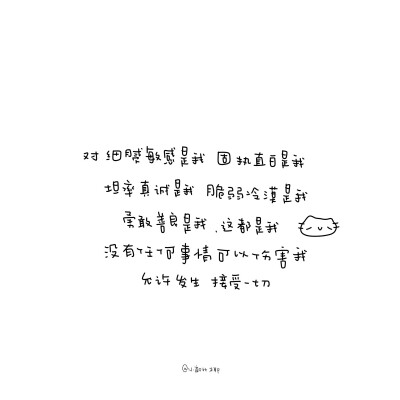 对 细腻敏感是我 固执直白是我
坦率真诚是我 脆弱冷漠是我
勇敢善良是我、这都是我
没有任何事情可以伤害我
允许发生 接受一切